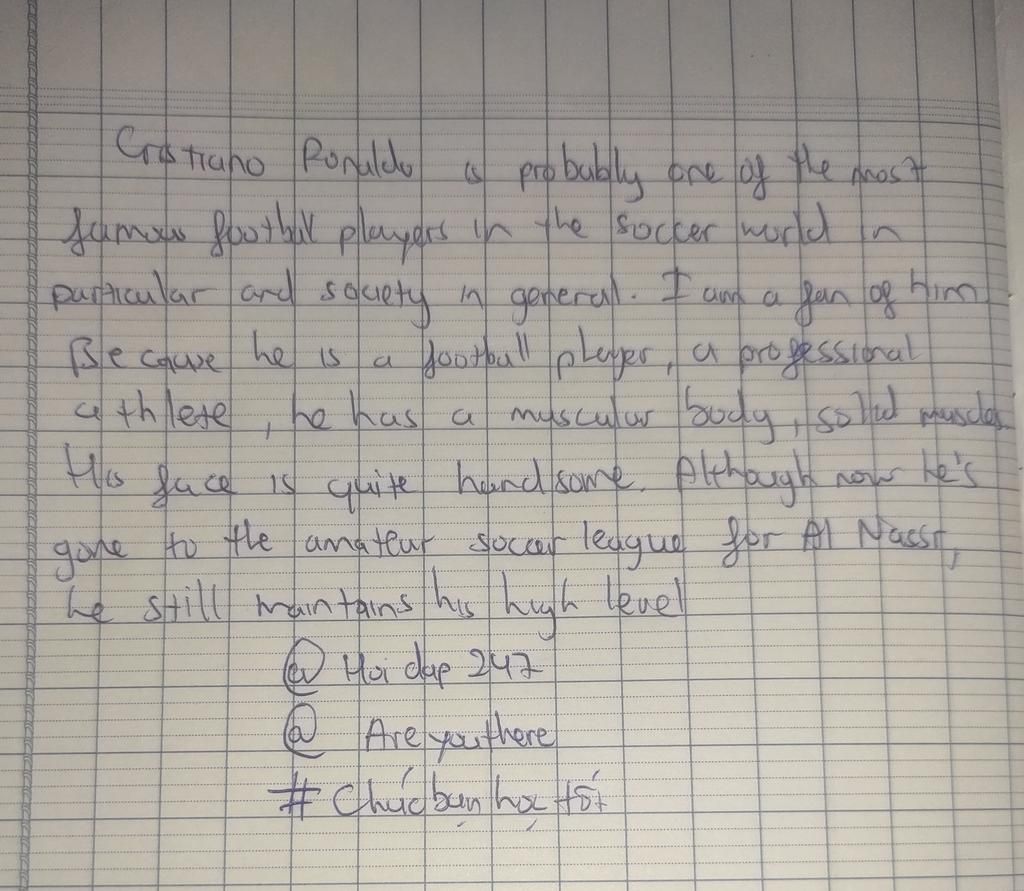 Cristiano Ronaldo is probably one of the most
famous football players in the soccer world in
particular and society in general. I am a fan of him
Because he is a football player, a professional
athlete, he has a muscular body, solid muscles
His face is quite handsome. Although now he's
gone to the amateur soccer league for Al Nassr,
he still maintains his high level
@ Hoi dap 247
@ Are you there
# Chúc bạn học tốt